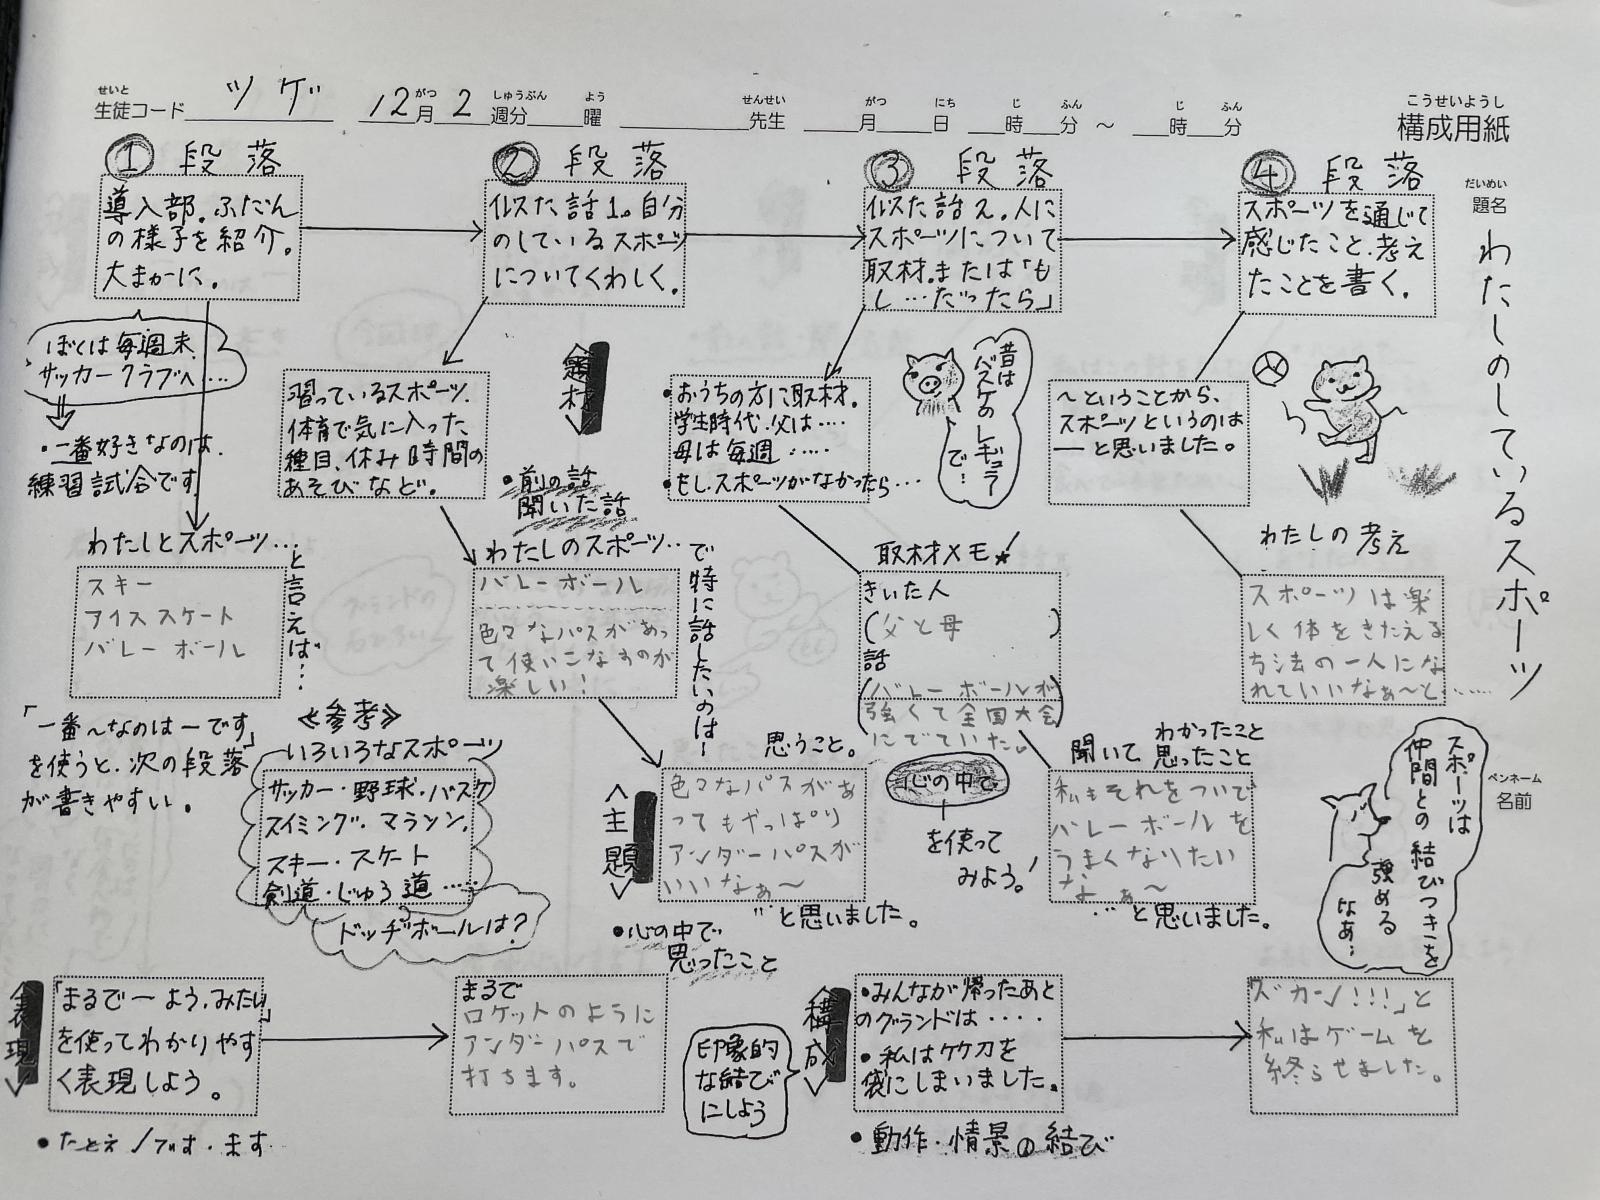 せいと
生徒コード ツゲ 12月 2 週分 曜 先生 月 日 時 分 ～ 時 分
がつ しゅうぶん よう せんせい がつ にち じ ふん じ ふん
こうせいようし
構成用紙
だいめい
題名
わたしのしているスポーツ
ペンネーム
名前
① 段落
導入部。ふだん
の様子を紹介。
大まかに。
ぼくは毎週末、
サッカークラブへ…
・一番好きなのは、
練習試合です
わたしとスポーツ…
と言えば…
スキー
アイススケート
バレーボール
「一番～なのは―です」
を使うと、次の段落
が書きやすい。
② 段落
似た話1。自分
のしているスポーツ
についてくわしく。
習っているスポーツ、
体育で気に入った
種目、休み時間の
あそびなど。
＜題材＞
・前の話
聞いた話
わたしのスポーツ…
で特に話したいのは―
バレーボール
色々なパスがあっ
て使いこなすのが
楽しい！
≪参考≫
いろいろなスポーツ
サッカー・野球・バスケ
スイミング・マラソン、
スキー・スケート
剣道・じゅう道……
ドッヂボールは？
＜主題＞
思うこと。
色々なパスがあ
ってもやっぱり
アンダーパスが
いいなぁ～
…と思いました。
・心の中で
思ったこと
③ 段落
似た話2。人に
スポーツについて
取材。または「も
し…だったら」
・おうちの方に取材。
学生時代、父は‥‥
母は毎週‥‥
・もし、スポーツがなかったら…
昔は
バスケの
レギュラー
で…
取材メモ
きいた人
(父と母 )
話
(バレーボールが
強くて全国大会
にでていた。
心の中で
を使って
みよう！
聞いて わかったこと
思ったこと
私もそれをついで
バレーボールを
うまくなりたい
なぁ～
…と思いました。
④ 段落
スポーツを通じて
感じたこと、考え
たことを書く。
～ということから、
スポーツというのは
―と思いました。
わたしの考え
スポーツは楽
しく体をきたえる
方法の一人にな
れていいなぁ～と……
スポーツは
仲間との結びつきを
強める
なあ…
＜表現＞
「まるで―よう、みたい」
を使ってわかりやす
く表現しよう。
・たとえ
まるで
ロケットのように
アンダーパスで
打ちます。
印象的
な結び
にしよう
＜構成＞
・みんなが帰ったあと
のグランドは‥‥
・私は竹刀を
袋にしまいました。
・動作・情景の結び
「ズカーン!!!」と
私はゲームを
終らせました。